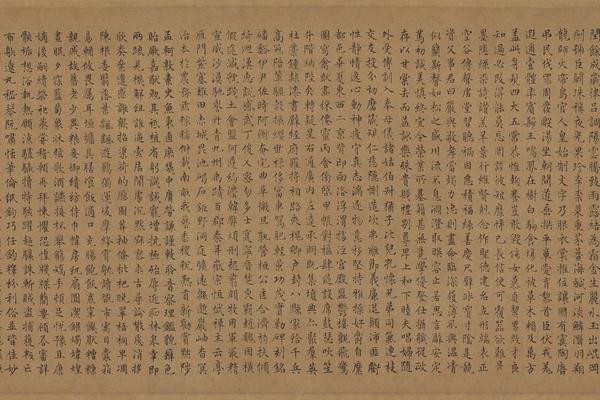 閏餘成歲律呂調陽雲騰致雨露結為霜金生麗水玉出崑岡
劍號巨闕珠稱夜光果珍李柰菜重芥薑海鹹河淡鱗潛羽翔
龍師火帝鳥官人皇始制文字乃服衣裳推位讓國有虞陶唐
弔民伐罪周發殷湯坐朝問道垂拱平章愛育黎首臣伏戎羌
遐邇壹體率賓歸王鳴鳳在樹白駒食場化被草木賴及萬方
蓋此身髮四大五常恭惟鞠養豈敢毀傷女慕貞絜男效才良
知過必改得能莫忘罔談彼短靡恃己長信使可覆器欲難量
墨悲絲染詩讚羔羊景行維賢剋念作聖德建名立形端表正
空谷傳聲虛堂習聽禍因惡積福緣善慶尺璧非寶寸陰是競
資父事君曰嚴與敬孝當竭力忠則盡命臨深履薄夙興溫凊
似蘭斯馨如松之盛川流不息淵澄取映容止若思言辭安定
篤初誠美慎終宜令榮業所基籍甚無竟學優登仕攝職從政
存以甘棠去而益詠樂殊貴賤禮別尊卑上和下睦夫唱婦隨
外受傅訓入奉母儀諸姑伯叔猶子比兒孔懷兄弟同氣連枝
交友投分切磨箴規仁慈隱惻造次弗離節義廉退顛沛匪虧
性靜情逸心動神疲守真志滿逐物意移堅持雅操好爵自縻
都邑華夏東西二京背邙面洛浮渭據涇宮殿盤鬱樓觀飛驚
圖寫禽獸畫綵仙靈丙舍傍啟甲帳對楹肆筵設席鼓瑟吹笙
升階納陛弁轉疑星右通廣內左達承明既集墳典亦聚群英
杜稾鍾隸漆書壁經府羅將相路俠槐卿戶封八縣家給千兵
高冠陪輦驅轂振纓世祿侈富車駕肥輕策功茂實勒碑刻銘
磻溪伊尹佐時阿衡奄宅曲阜微旦孰營桓公匡合濟弱扶傾
綺迴漢惠說感武丁俊乂密勿多士寔寧晉楚更霸趙魏困橫
假途滅虢踐土會盟何遵約法韓弊煩刑起翦頗牧用軍最精
宣威沙漠馳譽丹青九州禹跡百郡秦并嶽宗恒岱禪主云亭
雁門紫塞雞田赤城昆池碣石鉅野洞庭曠遠綿邈巖岫杳冥
治本於農務茲稼穡俶載南畝我藝黍稷稅熟貢新勸賞黜陟
孟軻敦素史魚秉直庶幾中庸勞謙謹敕聆音察理鑑貌辨色
貽厥嘉猷勉其祗植省躬譏誡寵增抗極殆辱近恥林皋幸即
兩疏見機解組誰逼索居閑處沉默寂寥求古尋論散慮逍遙
欣奏累遣慼謝歡招渠荷的歷園莽抽條枇杷晚翠梧桐早凋
陳根委翳落葉飄颻遊鵾獨運凌摩絳霄耽讀翫市寓目囊箱
易輶攸畏屬耳垣牆具膳飡飯適口充腸飽飫烹宰飢厭糟糠
親戚故舊老少異糧妾御績紡侍巾帷房紈扇圓潔銀燭煒煌
晝眠夕寐藍筍象床弦歌酒讌接杯舉觴矯手頓足悅豫且康
嫡後嗣續祭祀烝嘗稽顙再拜悚懼恐惶牋牒簡要顧答審詳
骸垢想浴執熱願涼驢騾犢特駭躍超驤誅斬賊盜捕獲叛亡
布射遼丸嵇琴阮嘯恬筆倫紙鈞巧任釣釋紛利俗並皆佳妙